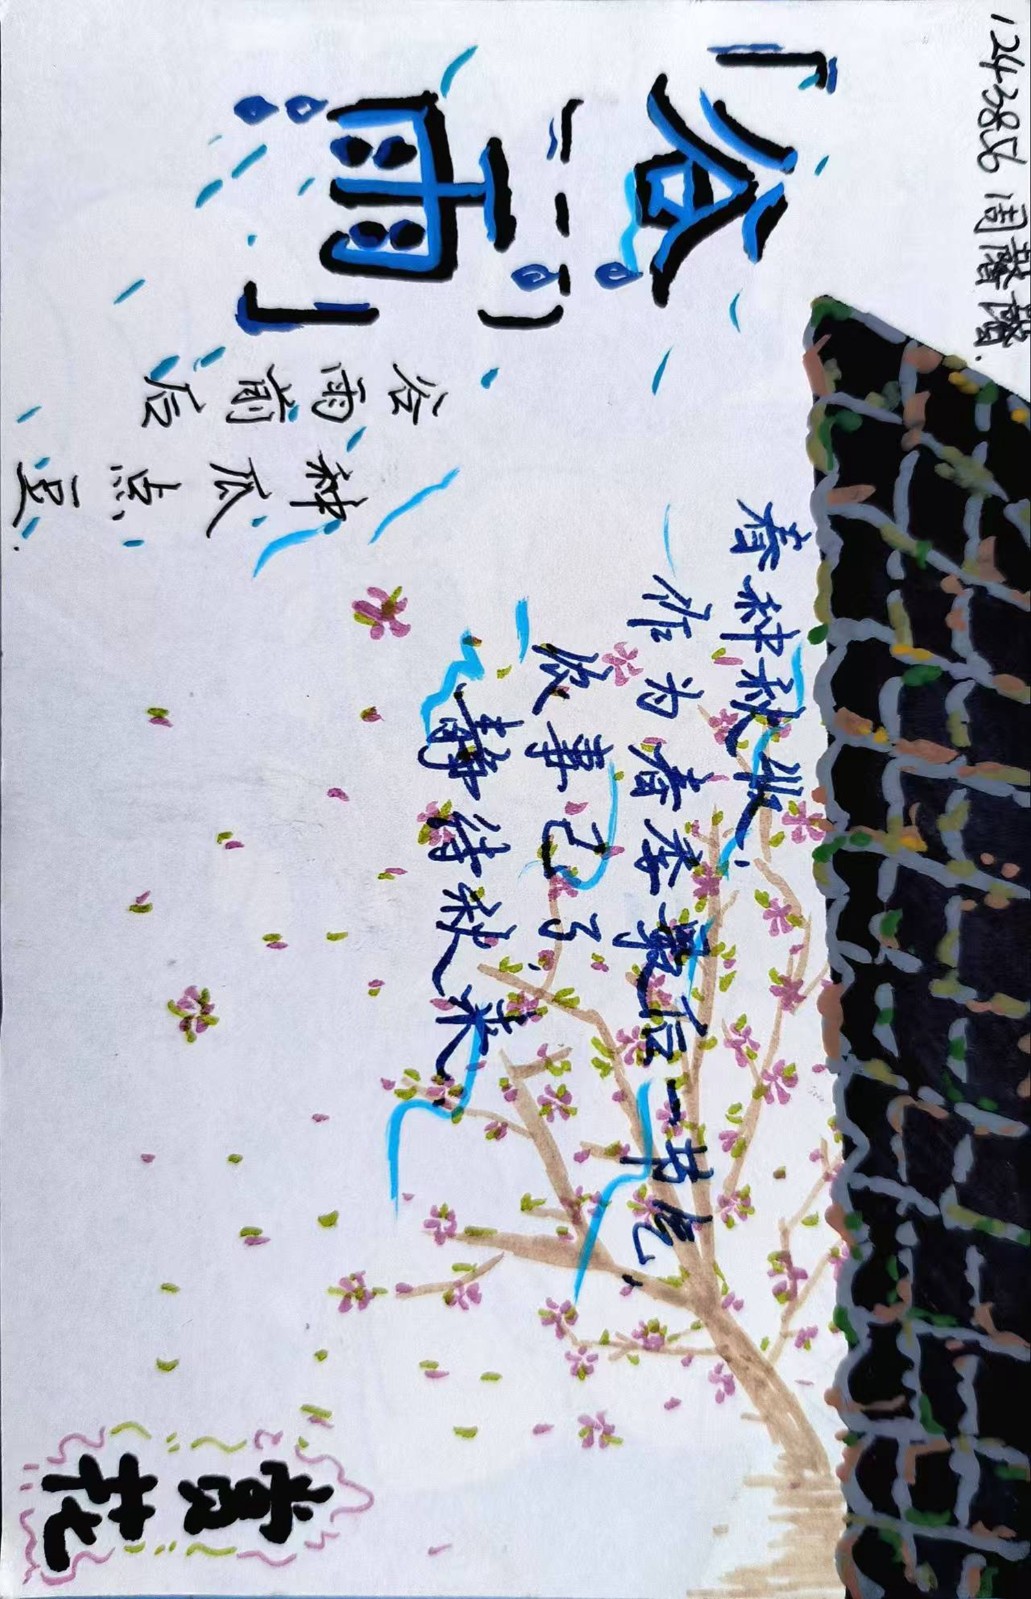 1243856 周馨
「谷雨」
谷雨前后
种瓜点豆.
春种秋收,
作为春季最后一节气,
农事已了,
静待秋来.
赏花